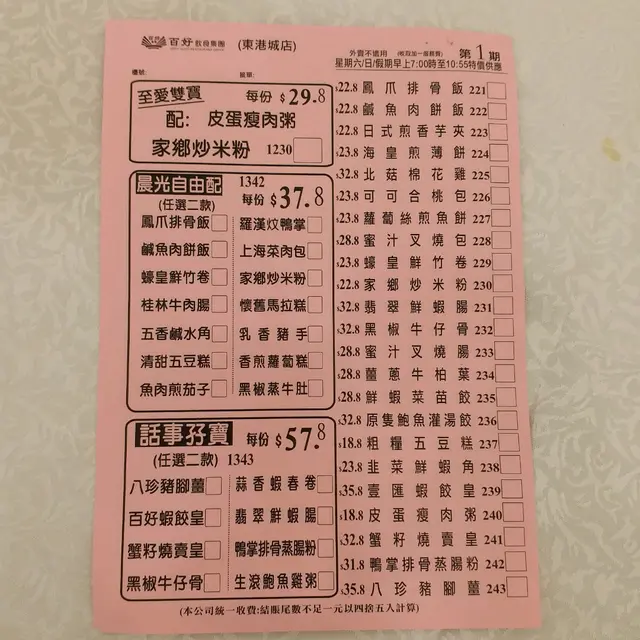 百好飲食集團 (東港城店)
外賣不適用 (收設加一服務費) 第1期
星期六/日/假期早上7:00時至10:55特價供應
檯號:
至愛雙寶 每份 $29.8
配: 皮蛋瘦肉粥
家鄉炒米粉 1230
晨光自由配 1342
(任選二款) 每份 $37.8
鳳爪排骨飯 羅漢炆鴨掌
鹹魚肉餅飯 上海菜肉包
蠔皇鮮竹卷 家鄉炒米粉
桂林牛肉腸 懷舊馬拉糕
五香鹹水角 乳香豬手
清甜五豆糕 香煎蘿蔔糕
魚肉煎茄子 黑椒蒸牛肚
話事孖寶 每份 $57.8
(任選二款) 1343
八珍豬腳薑 蒜香蝦春卷
百好蝦餃皇 翡翠鮮蝦腸
蟹籽燒賣皇 鴨掌排骨蒸腸粉
黑椒牛仔骨 生滾鮑魚雞粥
$22.8 鳳爪排骨飯 221
$22.8 鹹魚肉餅飯 222
$22.8 日式煎香芋夾 223
$23.8 海皇煎薄餅 224
$32.8 北菇棉花雞 225
$23.8 可可合桃包 226
$23.8 蘿蔔絲煎魚餅 227
$28.8 蜜汁叉燒包 228
$23.8 蠔皇鮮竹卷 229
$22.8 家鄉炒米粉 230
$32.8 翡翠鮮蝦腸 231
$32.8 黑椒牛仔骨 232
$28.8 蜜汁叉燒腸 233
$28.8 薑蔥牛柏葉 234
$28.8 鮮蝦菜苗餃 235
$32.8 原隻鮑魚灌湯餃 236
$18.8 粗糧五豆糕 237
$23.8 韭菜鮮蝦角 238
$35.8 壹匯蝦餃皇 239
$18.8 皮蛋瘦肉粥 240
$32.8 蟹籽燒賣皇 241
$31.8 鴨掌排骨蒸腸粉 242
$35.8 八珍豬腳薑 243
(本公司統一收費:結賬尾數不足一元以四捨五入計算)